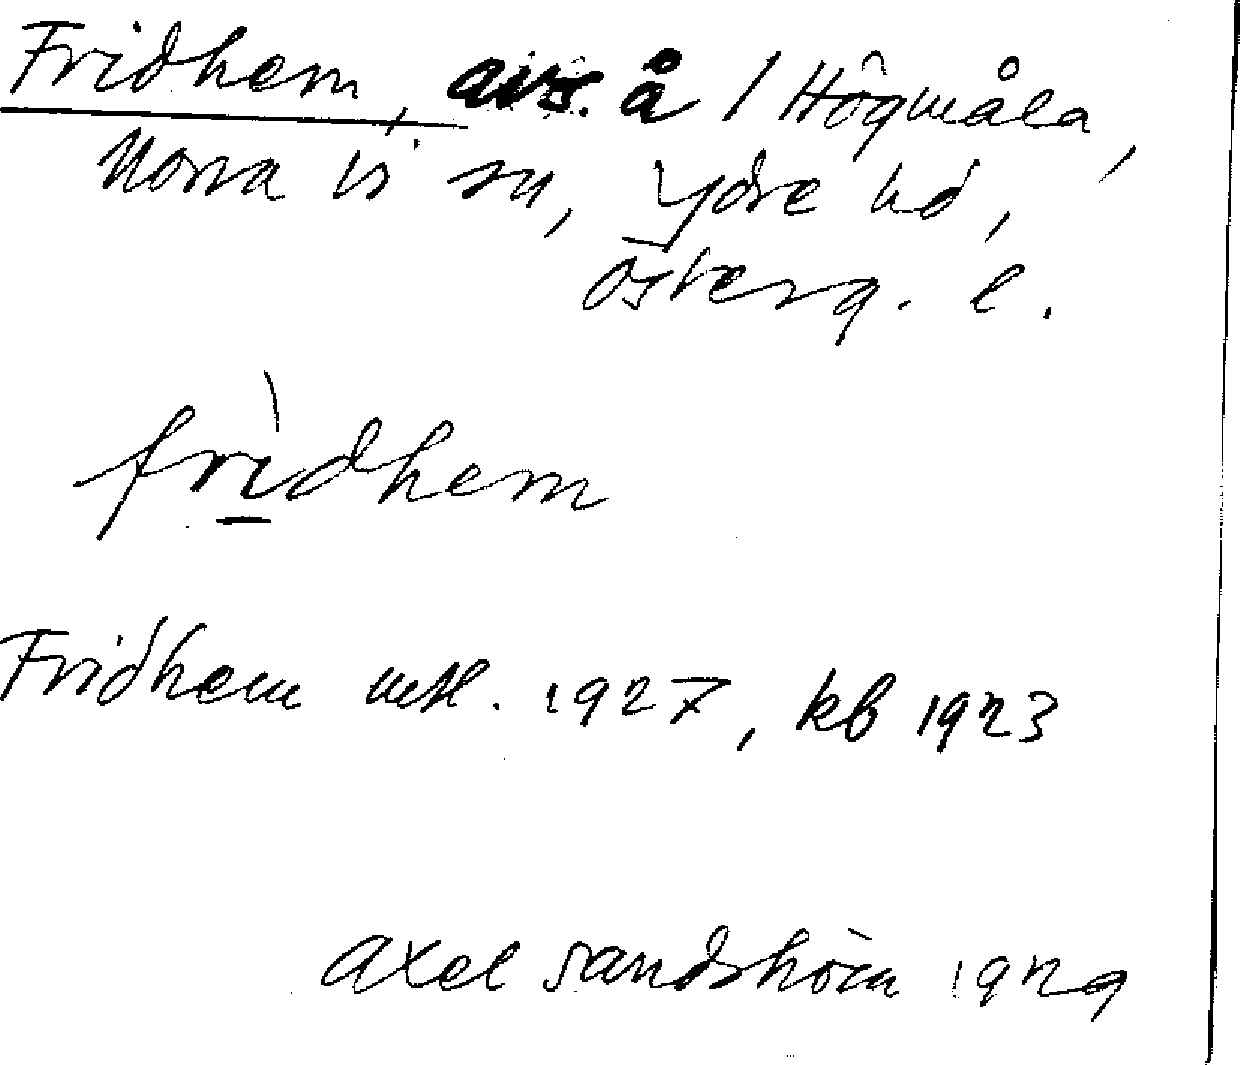 Fridhem, avs. å 1 Högmåla,
Norra Vi sn, Ydre hd,
Österg. l.
frìdhem
Fridhem mtl. 1927, kb 1923
Axel Sandström 1929